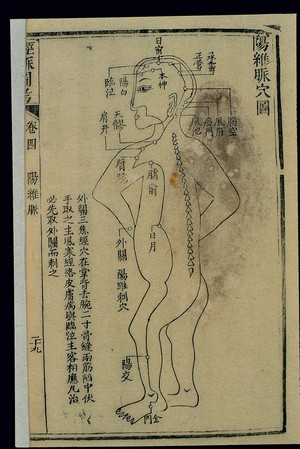 陽維脈穴圖
承靈
正營
目窗
本神
陽白
臨泣
腦空
風府
瘂門
風池
天髎
肩井
臑俞
日月
外關 陽維刺穴
陽交
金門
外關三焦經穴在掌背去腕二寸骨縫兩筋陷中伏
手取之主風寒經絡皮膚病與臨泣主客相應凡治
必先取外關而刺之
經脈圖考
卷四
陽維脈
二十九